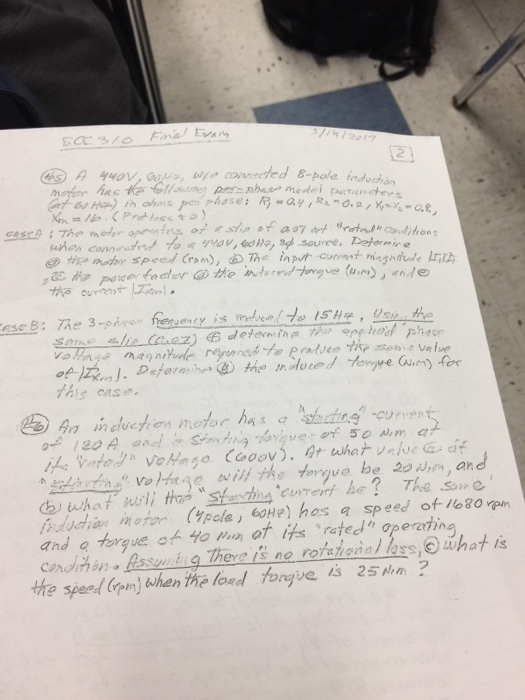 EOC 310 Final Exam 3/14/2017
2
#5 A 440V, 60Hz, wye connected 8-pole induction
motor has the following per-phase model parameters
(at 60 Hz) in ohms per phase: R1 = 0.4, R2 = 0.2, X1 = X2 = 0.8,
Xm = 16. (Prot loss = 0)
CASE A: The motor operates at a slip of at "rated" conditions
when connected to a 440V, 60Hz, 3ϕ source. Determine
ⓐ the motor speed (rpm), ⓑ The input current magnitude
ⓒ the power factor ⓓ the induced torque (N.m), and ⓔ
the current |Ixm|.
CASE B: The 3-phase frequency is reduced to 15 Hz. Using the
same slip ⓕ determine the applied phase
voltage magnitude required to produce the same value
of |Ixm|. Determine ⓖ the induced torque (N.m) for
this case.
#6 An induction motor has a "starting" current
of 120 A and a starting torque of 50 N.m at
its "rated" voltage (600V). At what value ⓐ of
"starting" voltage will the torque be 20 N.m, and
ⓑ what will the "starting" current be? The same
induction motor (4pole, 60Hz) has a speed of 1680 rpm
and a torque of 40 N.m at its "rated" operating
condition. Assuming there is no rotational loss, ⓒ what is
the speed (rpm) when the load torque is 25 N.m?